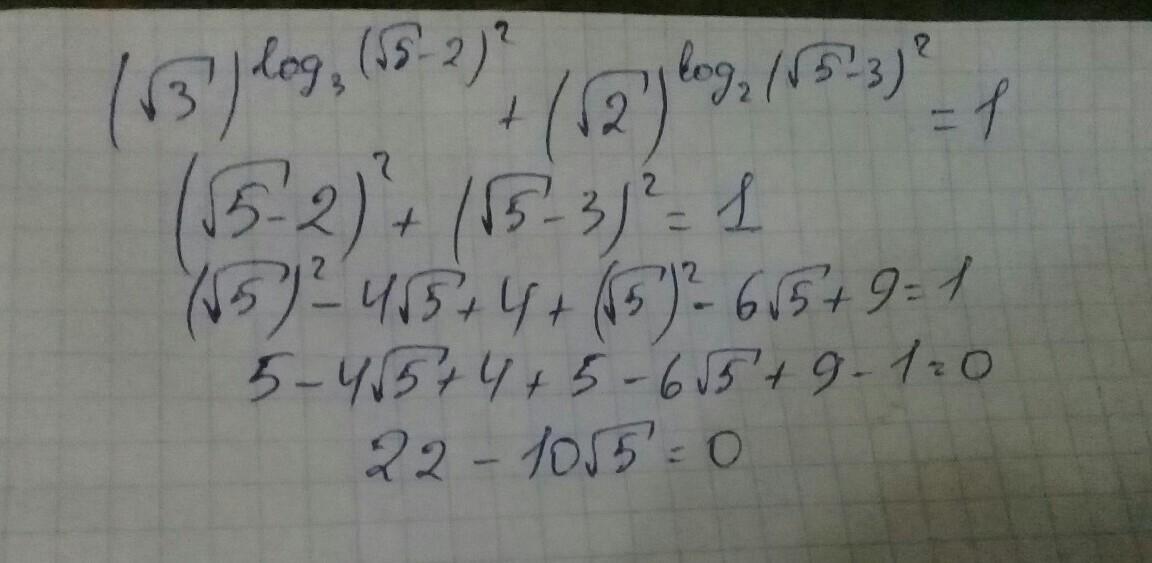 (√3)^log₃(√5-2)² + (√2)^log₂(√5-3)² = 1
(√5-2)² + (√5-3)² = 1
(√5)² - 4√5 + 4 + (√5)² - 6√5 + 9 = 1
5 - 4√5 + 4 + 5 - 6√5 + 9 - 1 = 0
22 - 10√5 = 0